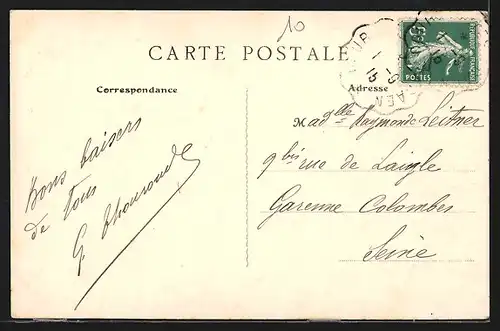 10
CARTE POSTALE
Correspondance
Adresse
REPUBLIQUE FRANÇAISE
POSTES
Madelle Raymonde Leitner
9 bis rue de Laigle
Garenne Colombes
Seine
Bons baisers
de Tous
G